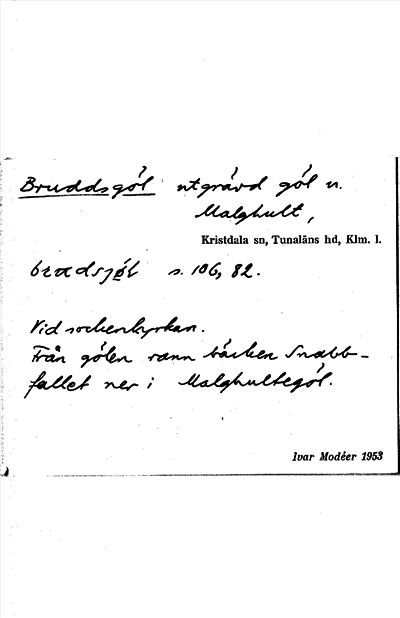 Bruddsgöl utgrävd göl n.
Malghult,
Kristdala sn, Tunaläns hd, Klm. l.
s. 106, 82.
Vid sockenkyrkan.
Från gölen rann bäcken Snabb-
fallet ner i Malghultegöl.
Ivar Modéer 1953